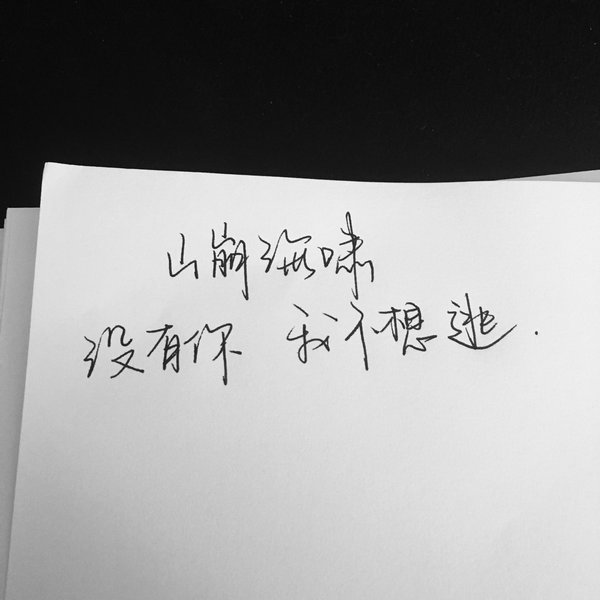 山崩海啸
没有你 我不想逃.